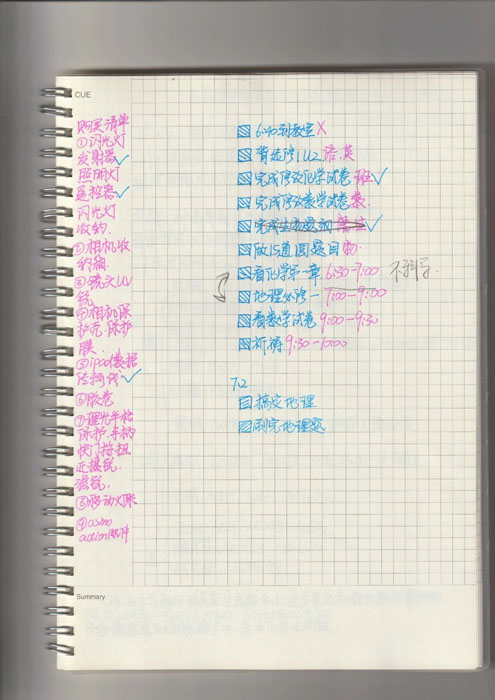 CUE
购买清单
①闪光灯
发射器✓
照明灯
遥控器✓
闪光灯
收纳.
②相机收
纳箱.
③镜头UV
镜.
④相机保
护壳.保护
膜.
⑤ipod数据
转换线✓
⑥胶卷
⑦理光
保护.手柄
快门按钮
近摄镜.
滤镜.
⑧移动火眼
⑨osmo
action
6:40到教室X
背 必修1U2 语.英
完成修改化学试卷 班✓
完成修改数学试卷
完成
做15道圆题目 物.
看化学第一章 6:30-7:00 不科学.
地理必修一 7:00-9:00
看数学试卷 9:00-9:30
祈祷 9:30-10:00
7.2
搞定地理
刷完地理题
Summary